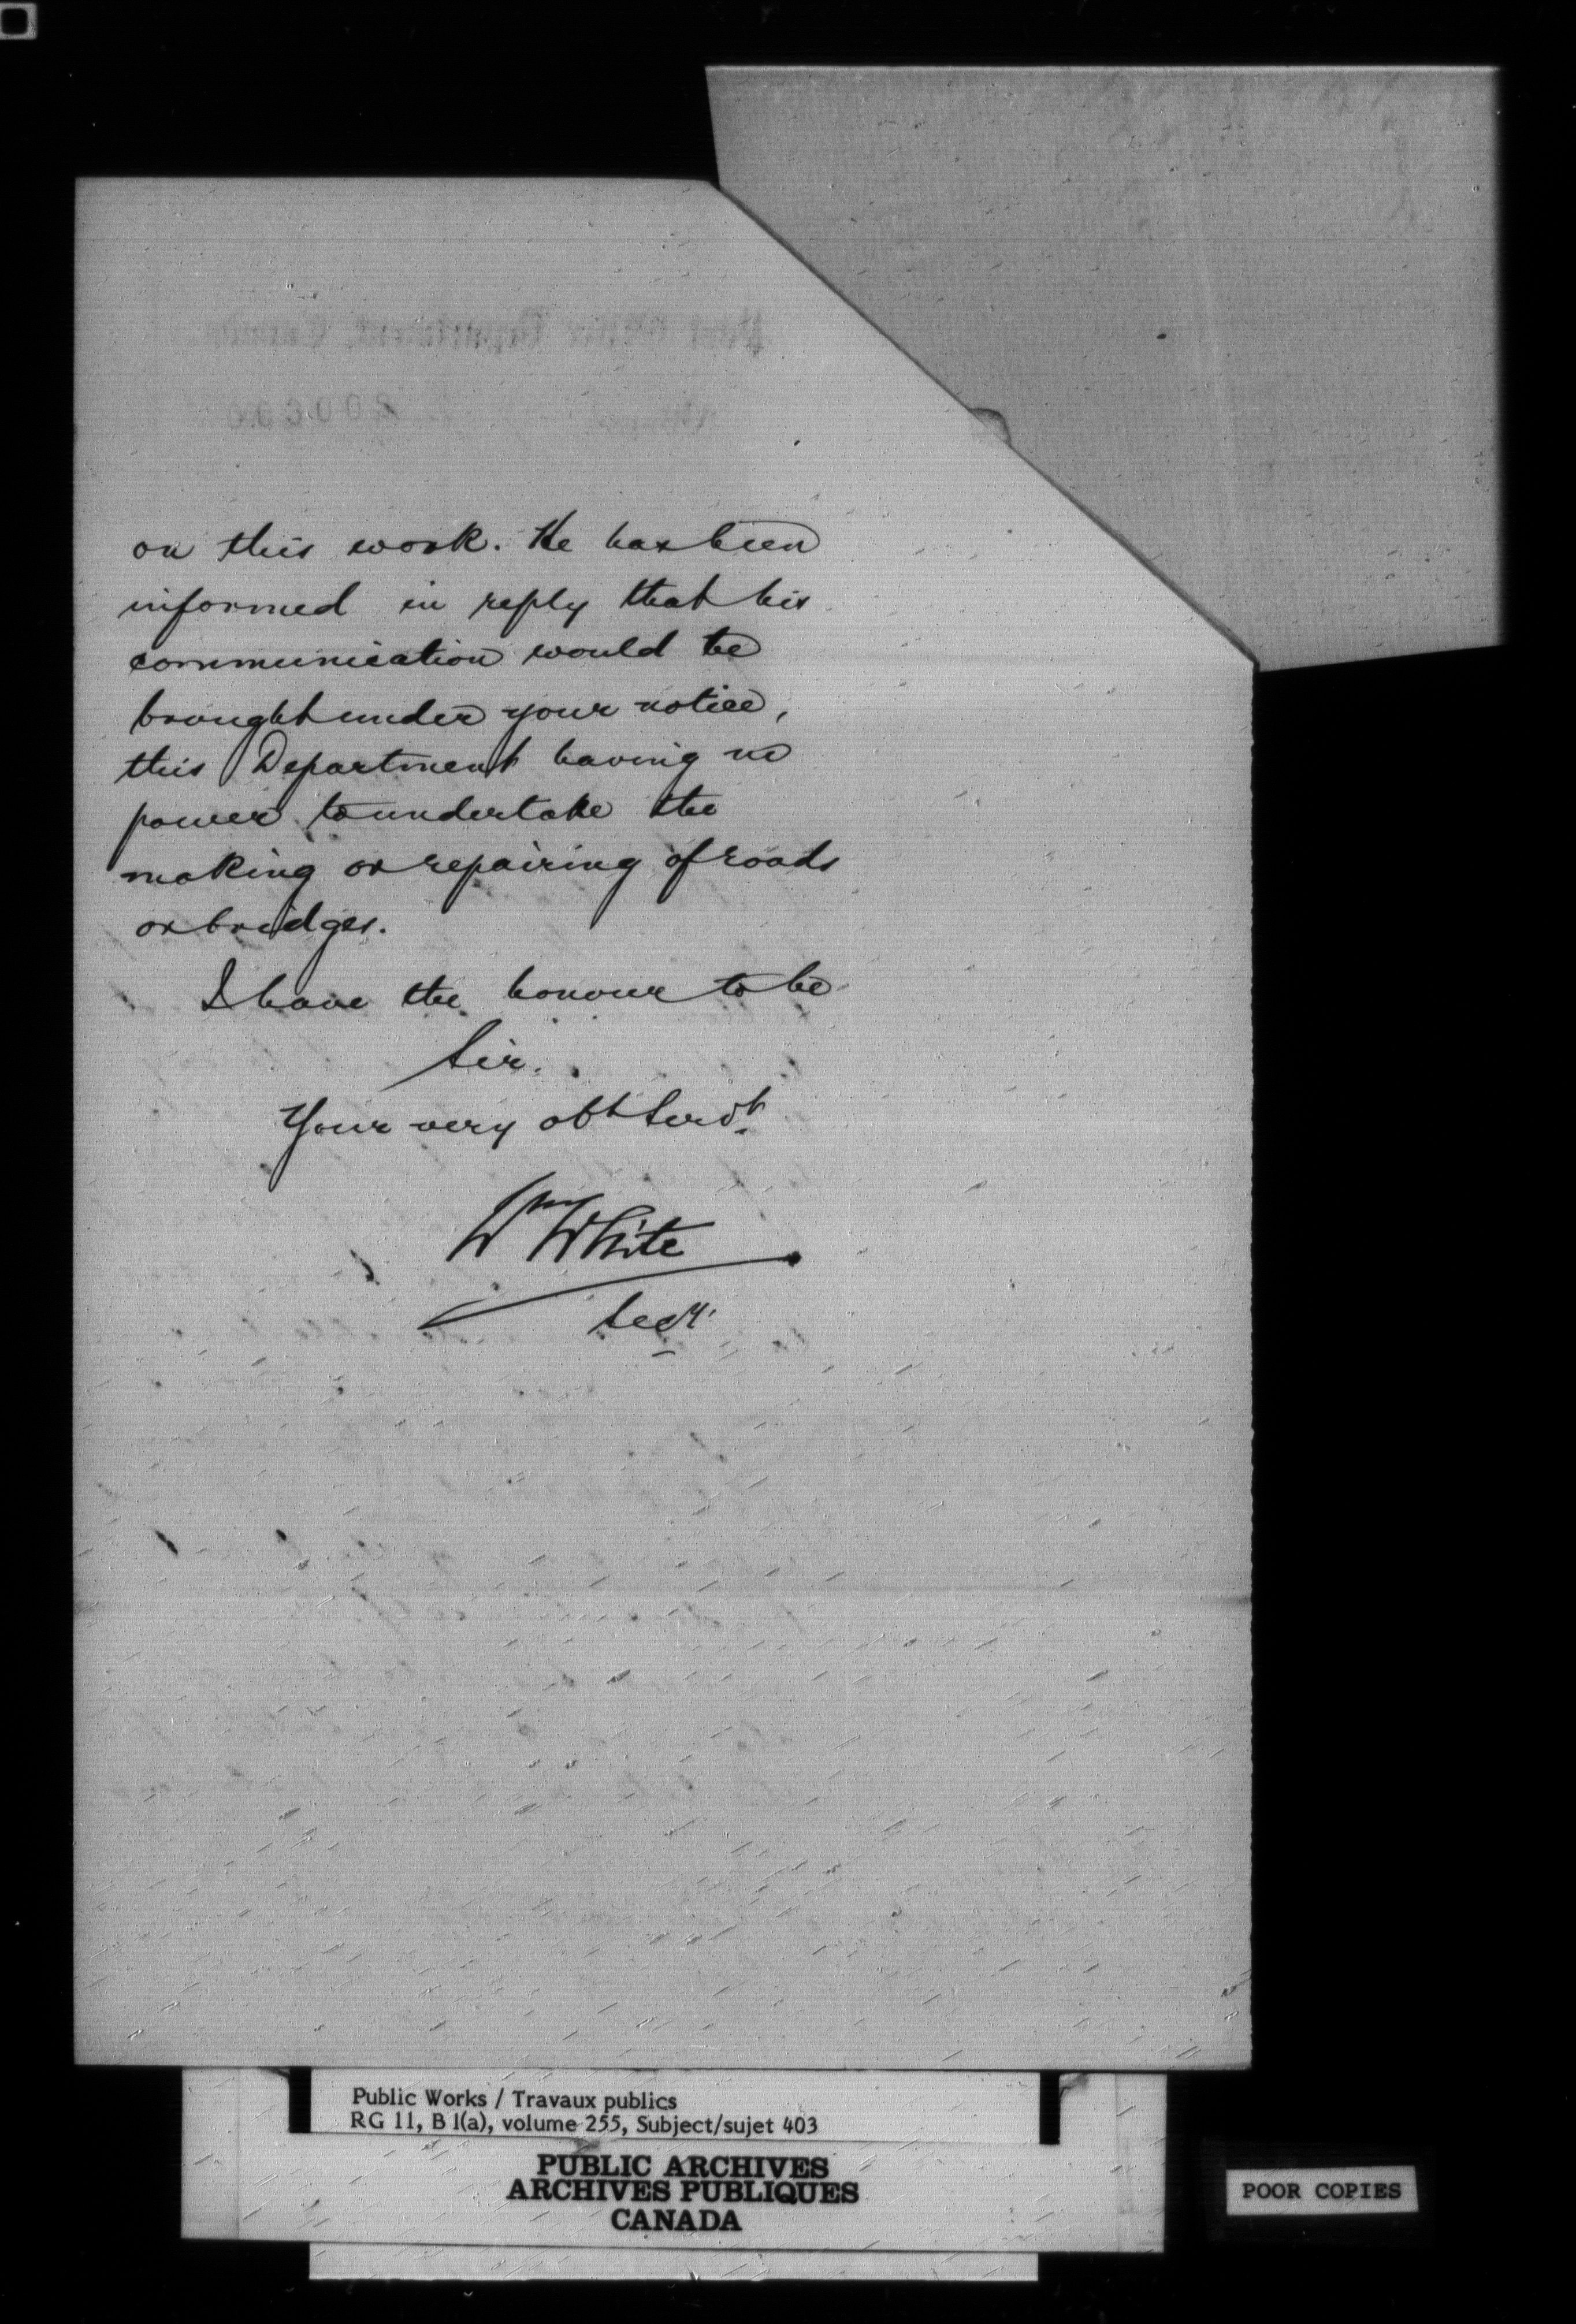 on this work. He has been
informed in reply that his
communication would be
brought under your notice,
this Department having no
power to undertake the
making or repairing of roads
or bridges.
I have the honour to be
Sir.
Your very obt Servt.
Wm White
Secy.
Public Works / Travaux publics
RG 11, B 1(a), volume 255, Subject/sujet 403
PUBLIC ARCHIVES
ARCHIVES PUBLIQUES
CANADA
POOR COPIES